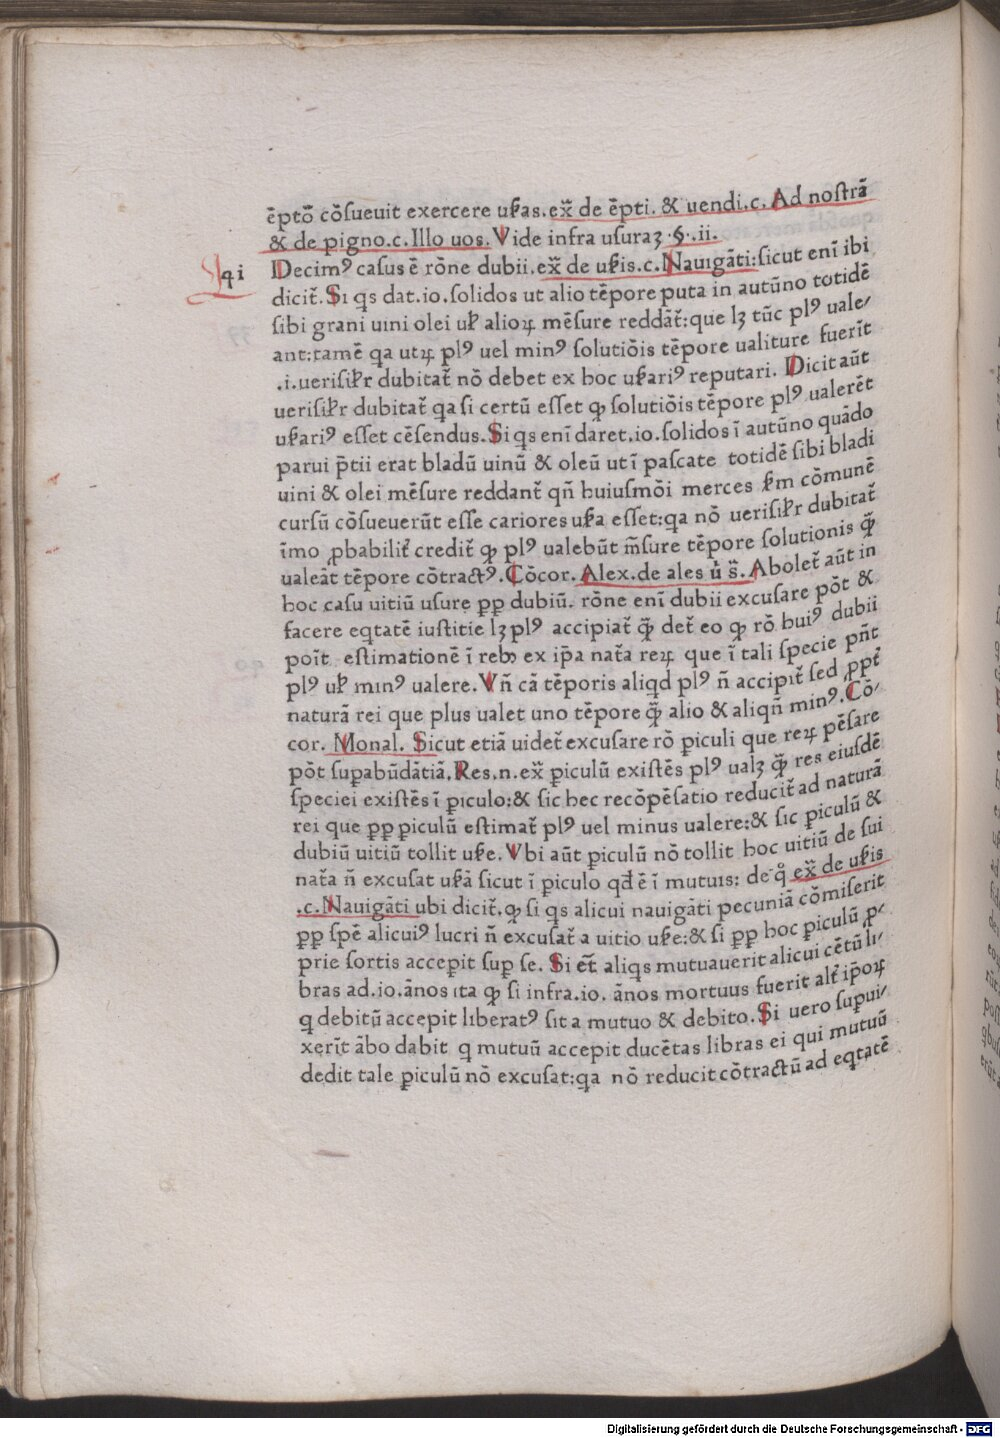 ēptō cōsueuit exercere uſ̶as.ex̄ de ēpti. & uendi.c. Ad noſtrā
& de pigno.c.Illo uos. Vide infra uſuraꝫ .§.ii.
qi
Decimꝰ caſus ē rōne dubii.ex̄ de uſ̶is.c.Nauigāti:ſicut enī ibi
dicit̄. Si qs dat.io.ſolidos ut alio tēpore puta in autūno totidē
ſibi grani uini olei ul̄ alioꝝ mēſure reddāt̄:que lꝫ tūc plꝰ uale/
ant:tamē qa utꝝ plꝰ uel minꝰ ſolutiōis tēpore ualiture fuerīt
.i.ueriſil̄r dubitat̄ nō debet ex hoc uſ̶ariꝰ reputari. Dicit aūt
ueriſil̄r dubitat̄ qa ſi certū eſſet ꝙ ſolutiōis tēpore plꝰ ualerēt
uſ̶ariꝰ eſſet cēſendus.Si qs enī daret.io.ſolidos ī autūno quādo
parui p̄tii erat bladū uinū & oleū ut ī paſcate totidē ſibi bladi
uini & olei mēſure reddant̄ qn̄ huiuſmōi merces ſ̶m cōmunē
curſū cōſueuerūt eſſe cariores uſ̶a eſſet:qa nō ueriſil̄r dubitat̄
īmo ꝓbabilit̄ credit̄ ꝙ plꝰ ualebūt m̄ſure tēpore ſolutionis ꝙ̄
ualeāt tēpore cōtractꝰ.Cōcor. Alex.de ales ū s̄. Abolet̄ aūt in
hoc caſu uitiū uſure ꝑꝑ dubiū. rōne enī dubii excuſare pōt &
facere eqtatē iuſtitie lꝫ plꝰ accipiat̄ ꝙ̄ det̄ eo ꝙ rō huiꝰ dubii
poīt eſtimationē ī rebꝰ ex ip̄a nat̄a reꝝ que ī tali ſpecie pn̄t
plꝰ ul̄ minꝰ ualere. Vn̄ cā tēporis aliqd plꝰ n̄ accipit̄ ſed ꝓpt̄
naturā rei que plus ualet uno tēpore ꝙ̄ alio & aliqn̄ minꝰ.Cō/
cor. Monal. Sicut etiā uidet̄ excuſare rō ꝑiculi que reꝝ pēſare
pōt ſupabūdātiā. Res.n.ex̄ ꝑiculū exiſtēs plꝰ ualꝫ ꝙ̄ res eiuſdē
ſpeciei exiſtēs ī ꝑiculo:& ſic hec recōpēſatio reducit̄ ad naturā
rei que ꝑꝑ ꝑiculū eſtimat̄ plꝰ uel minus ualere:& ſic ꝑiculū &
dubiū uitiū tollit uſ̶e. Vbi aūt ꝑiculū nō tollit hoc uitiū de ſui
nat̄a n̄ excuſat uſ̶ā ſicut ī ꝑiculo qd̄ ē ī mutuis: de q̊ ex̄ de uſ̶is
.c.Nauigāti ubi dicit̄.ꝙ ſi qs alicui nauigāti pecuniā cōmiſerit
ꝑꝑ ſpē alicuiꝰ lucri n̄ excuſat̄ a uitio uſ̶e:& ſi ꝑꝑ hoc ꝑiculū ꝓ/
prie ſortis accepit ſuꝑ ſe. Si et̄ aliqs mutuauerit alicui cētū li/
bras ad.io.ānos ita ꝙ ſi infra.io. ānos mortuus fuerit alt̄ ip̄oꝝ
q debitū accepit liberatꝰ ſit a mutuo & debito. Si uero ſupui/
xerīt ābo dabit q mutuū accepit ducētas libras ei qui mutuū
dedit tale ꝑiculū nō excuſat:qa nō reducit cōtractū ad eqtatē
Digitalisierung gefördert durch die Deutsche Forschungsgemeinschaft - DFG